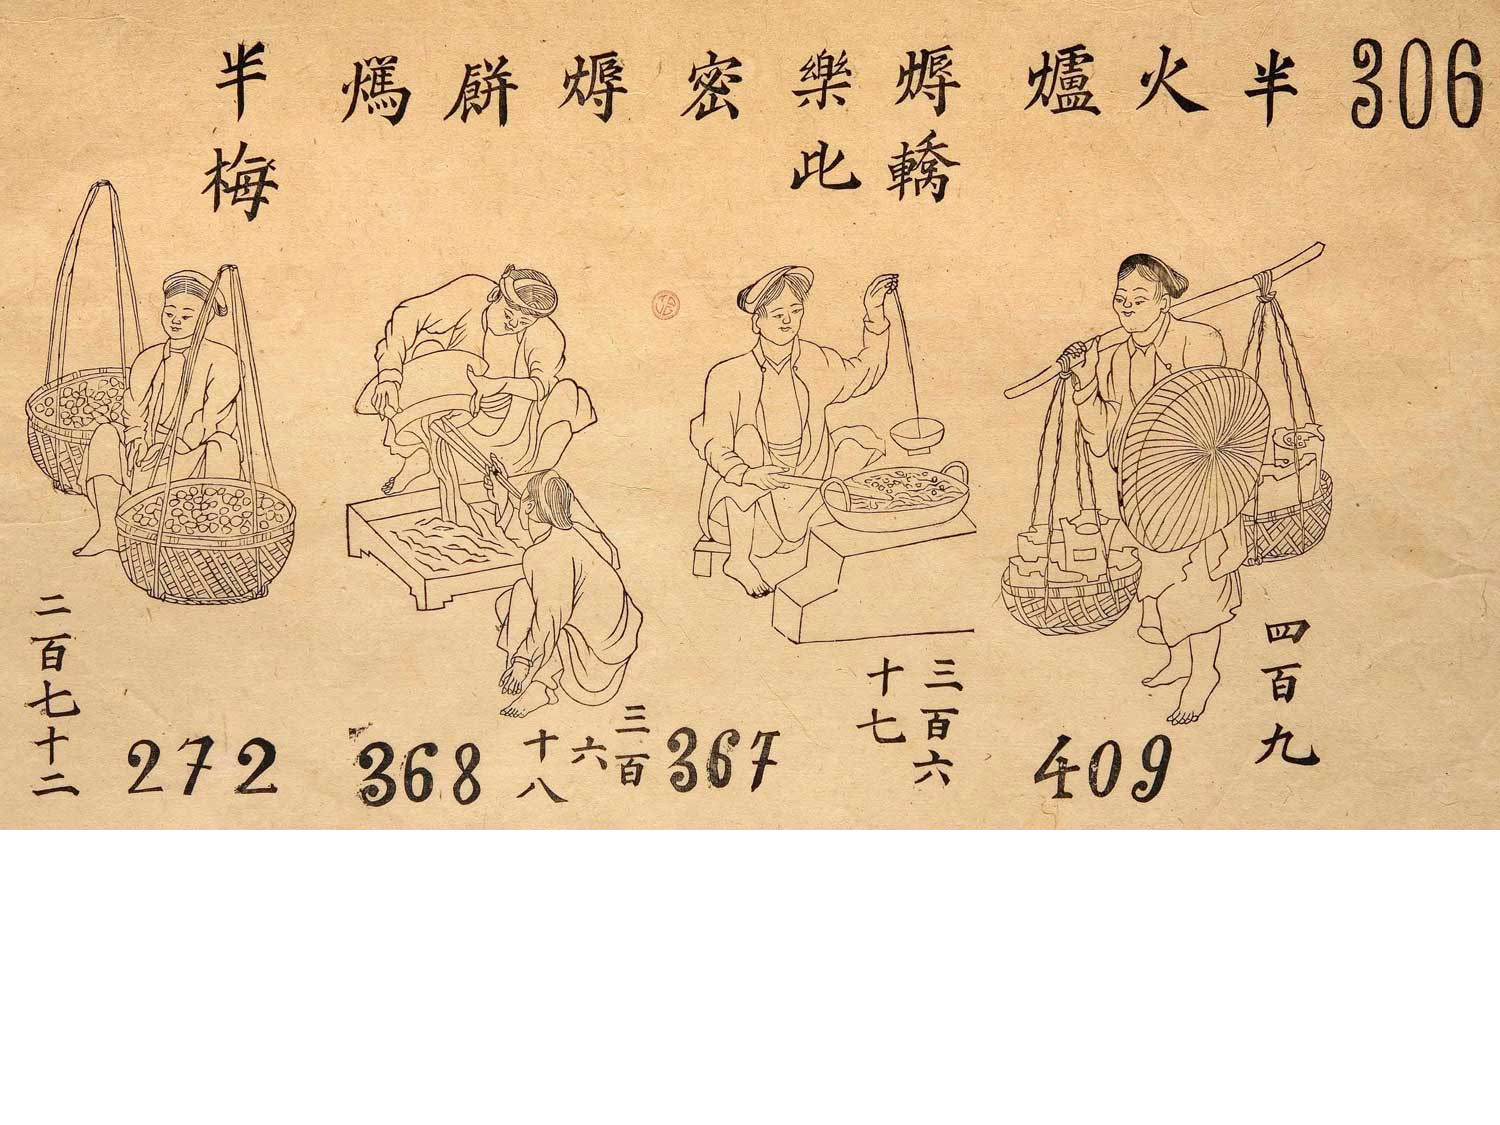 306
半火爐
轎
樂此
密
餅
半梅
四百九
409
三百六
十七
367
三百
六
十八
368
272
二百七十二